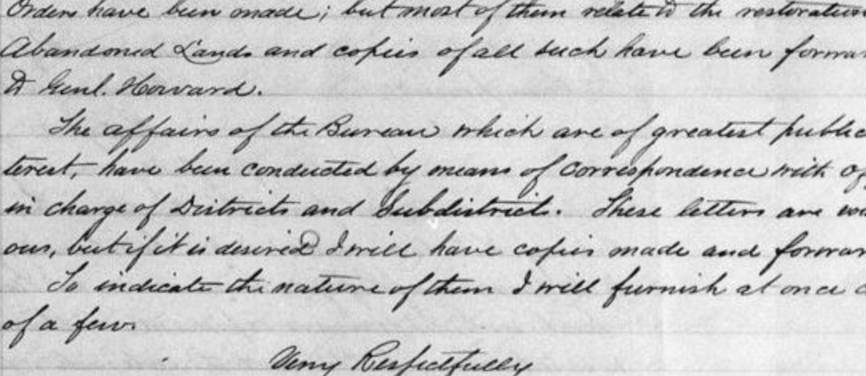 Orders have been made; but most of them relate to the restoration
Abandoned Lands and copies of all such have been forwar
to Genl. Howard.
The affairs of the Bureau which are of greatest public
terest, have been conducted by means of correspondence with of
in charge of Districts and Subdistricts. These letters are vo
ous, but if it is desired I will have copies made and forwar
To indicate the nature of them I will furnish at once c
of a few.
Very Respectfully